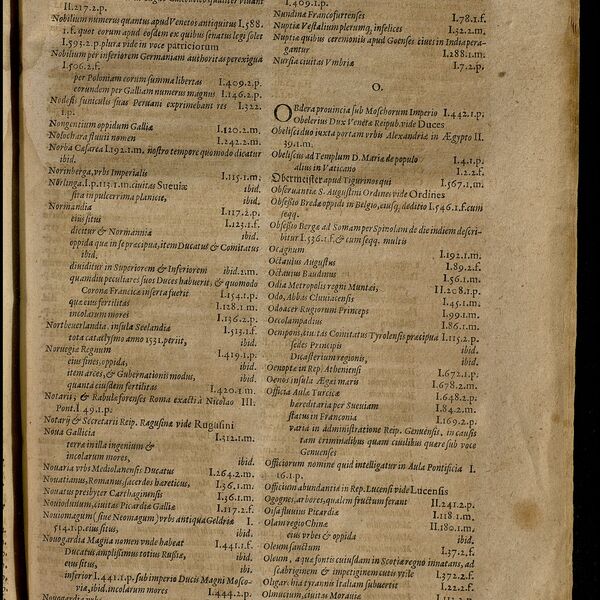 II.217.2.p.
Nobilium numerus quantus apud Venetos antiquitus I.588.
1.f. quot eorum apud eosdem ex quibus senatus legi solet
I.593.2.p. plura vide in voce patriciorum
Nobilium per inferiorem Germaniam authoritas perexigua
I.506.2.f.
per Poloniam eorum summa libertas I.409.2.p.
eorundem per Galliam numerus magnus I.146.2.p.
Nodosis funiculis suas Peruani exprimebant res I.322.
1.p.
Nongentium oppidum Galliæ I.120.2.m.
Nolochara fluvii nomen I.242.2.m.
Norba Cæsarea I.192.1.m, nostro tempore quomodo dicatur
ibid.
Norinberga, vrbs Imperialis I.115.1.m.
Nörlinga I.p.113.1.m. ciuitas Sueuiæ ibid.
sita in pulcerrima planicie, ibid.
Normandia I.117.2.p.
eius situs I.123.1.f.
dicitur & Normannia ibid.
oppida quæ in se præcipua, item Ducatus & Comitatus
ibid.
diuiditur in Superiorem & Inferiorem ibid.2.m.
quamdiu peculiares suos Duces habuerit, & quomodo
Coronæ Francicæ inserta fuerit I.154.1.p.
quæ eius fertilitas I.128.1.m.
incolarum mores I.136.2.p.
Nortbeuerlandia insula Seelandiæ I.513.1.f.
tota cataclysmo anno 1531. periit, ibid.
Noruegiæ Regnum I.419.1.p.
eius fines, oppida, ibid.
item arces, & Gubernationis modus, ibid.
quanta eiusdem fertilitas I.420.1.m.
Notarii, & Rabulæ forenses Roma exacti à Nicolao III.
Pont. I.49.1.p.
Notarij & Secretarii Reip. Ragusinæ vide Rugusini
Noua Gallicia I.312.1.m.
terræ in illa ingenium &
incolarum mores, ibid.
Nouaria vrbs Mediolanensis Ducatus I.264.2.m.
Nouatianus, Romanus, sacerdos hæreticus, I.36.1.m.
Nouatus presbyter Carthaginensis I.36.1.m.
Nouiodunum, ciuitas Picardiæ Galliæ I.117.2.f.
Nouiomagum (siue Neomagum) vrbs antiqua Geldriæ I.
514.1.p. eius situs, ibid.
Nouogardia Magna nomen vnde habeat I.441.1.f.
Ducatus amplißimus totius Rußiæ, ibid.
eius situs, ibid.
inferior I.441.1.p. sub imperio Ducis Magni Mosco-
via, ibid. incolarum mores I.444.2.p.
I.409.1.p.
Nundinæ Francofurtenses I.78.1.f.
Nuptiæ Vestalium plerumq, infelices I.32.2.m.
Nuptiæ quibus ceremoniis apud Goenses ciues in India pera-
gantur I.288.1.m.
Nursia ciuitas Vmbriæ I.7.2.p.
O.
OBdera prouincia sub Moschorum Imperio I.442.1.p.
Obelerius Dux Venetæ Reipub. vide Duces
Obelisci duo iuxta portam vrbis Alexandriæ in Ægypto II.
39.1.m.
Obeliscus ad Templum D. Mariæ de populo I.4.1.p.
alius in Vaticano I.2.2.f.
Obermeister apud Tigurinos qui I.567.1.m.
Obseruantiæ S. Augustini Ordines vide Ordines
Obseßio Bredæ oppidi in Belgio, eiusq, deditio I.546.1.f. cum
seqq.
Obseßio Bergæ ad Somam per Spinolam de die in diem descri-
bitur I.536.1.f. & cum seqq. multis
Ocagnum I.192.1.m.
Octauius Augustus I.89.2.f.
Octauius Baudinus I.56.1.m.
Odia Metropolis regni Muntai, II.208.1.p.
Odo, Abbas Cluniacensis I.45.1.m.
Odoacer Rugiorum Princeps I.99.1.m.
Oecolampadius I.86.1.m.
Oenipons, ciuitas Comitatus Tyrolensis præcipua I.115.2.p.
sedes Principis ibid.
Dicasterium regionis, ibid.
Oenoptæ in Rep. Atheniensi I.672.1.p.
Oenos insula Ægæi maris I.678.2.m.
Officia Aulæ Turcicæ I.648.2.p.
hæreditaria per Sueuiam I.84.2.m.
status in Franconia I.169.2.p.
varia in administratione Reip. Genuensis, in causis
tam criminalibus quam ciuilibus quære sub voce
Genuenses
Officiorum nomine quid intelligatur in Aula Pontificia I.
16.1.p.
Officium abundantiæ in Rep. Lucensi vide Lucensis
Ogognes, arbores, qualem fructum ferant II.241.2.p.
Oisa fluuius Picardiæ I.118.1.m.
Olam regio Chinæ II.180.1.m.
eius vrbes & oppida ibid.
Oleum sanctum I.37.2.f.
Oleum, aquæ fontis cuiusdam in Scotiæ regno innatans, ad
scabriginem & impetiginem cutis vtile I.372.2.f.
Oligarchia tyrannis Italiam subuertit I.22.2.f.
Olmucium, ciuitas Morauiæ